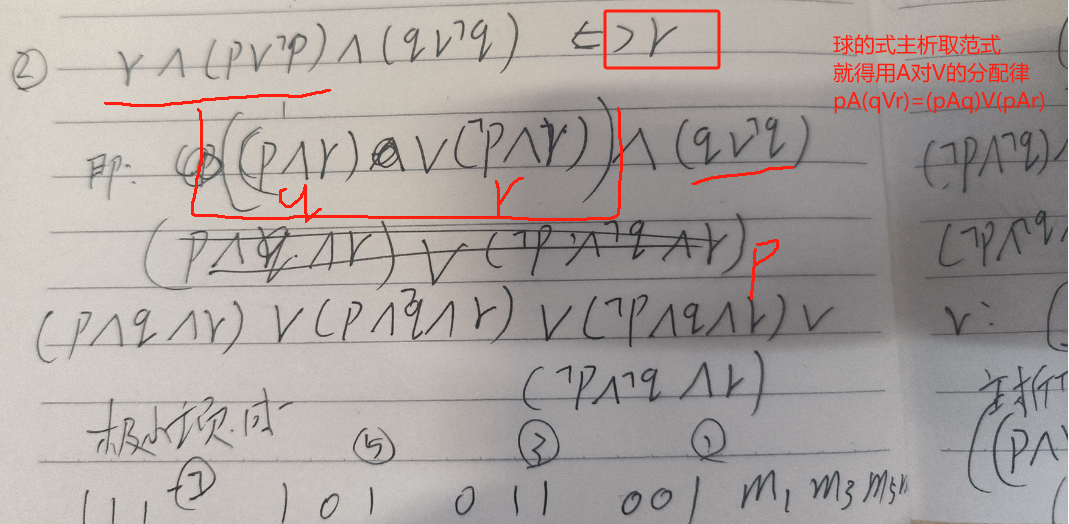 ② r∧(p∨¬p)∧(q∨¬q) <=>r
球的式主析取范式
就得用A对V的分配律
pA(qVr)=(pAq)V(pAr)
即: ((p∧r) ∨(¬p∧r))∧(q∨¬q)
q r
(p∧q∧r)∨(¬p∧¬q∧r)
p
(p∧q∧r)∨(p∧¬q∧r)∨(¬p∧q∧r)∨
(¬p∧¬q∧r)
极小项
⑦ ⑤ ③ ①
111 101 011 001 m₁ m₃ m₅
(¬p∧¬q)∧
(¬p∧¬q∧
r:
主析
((p∧